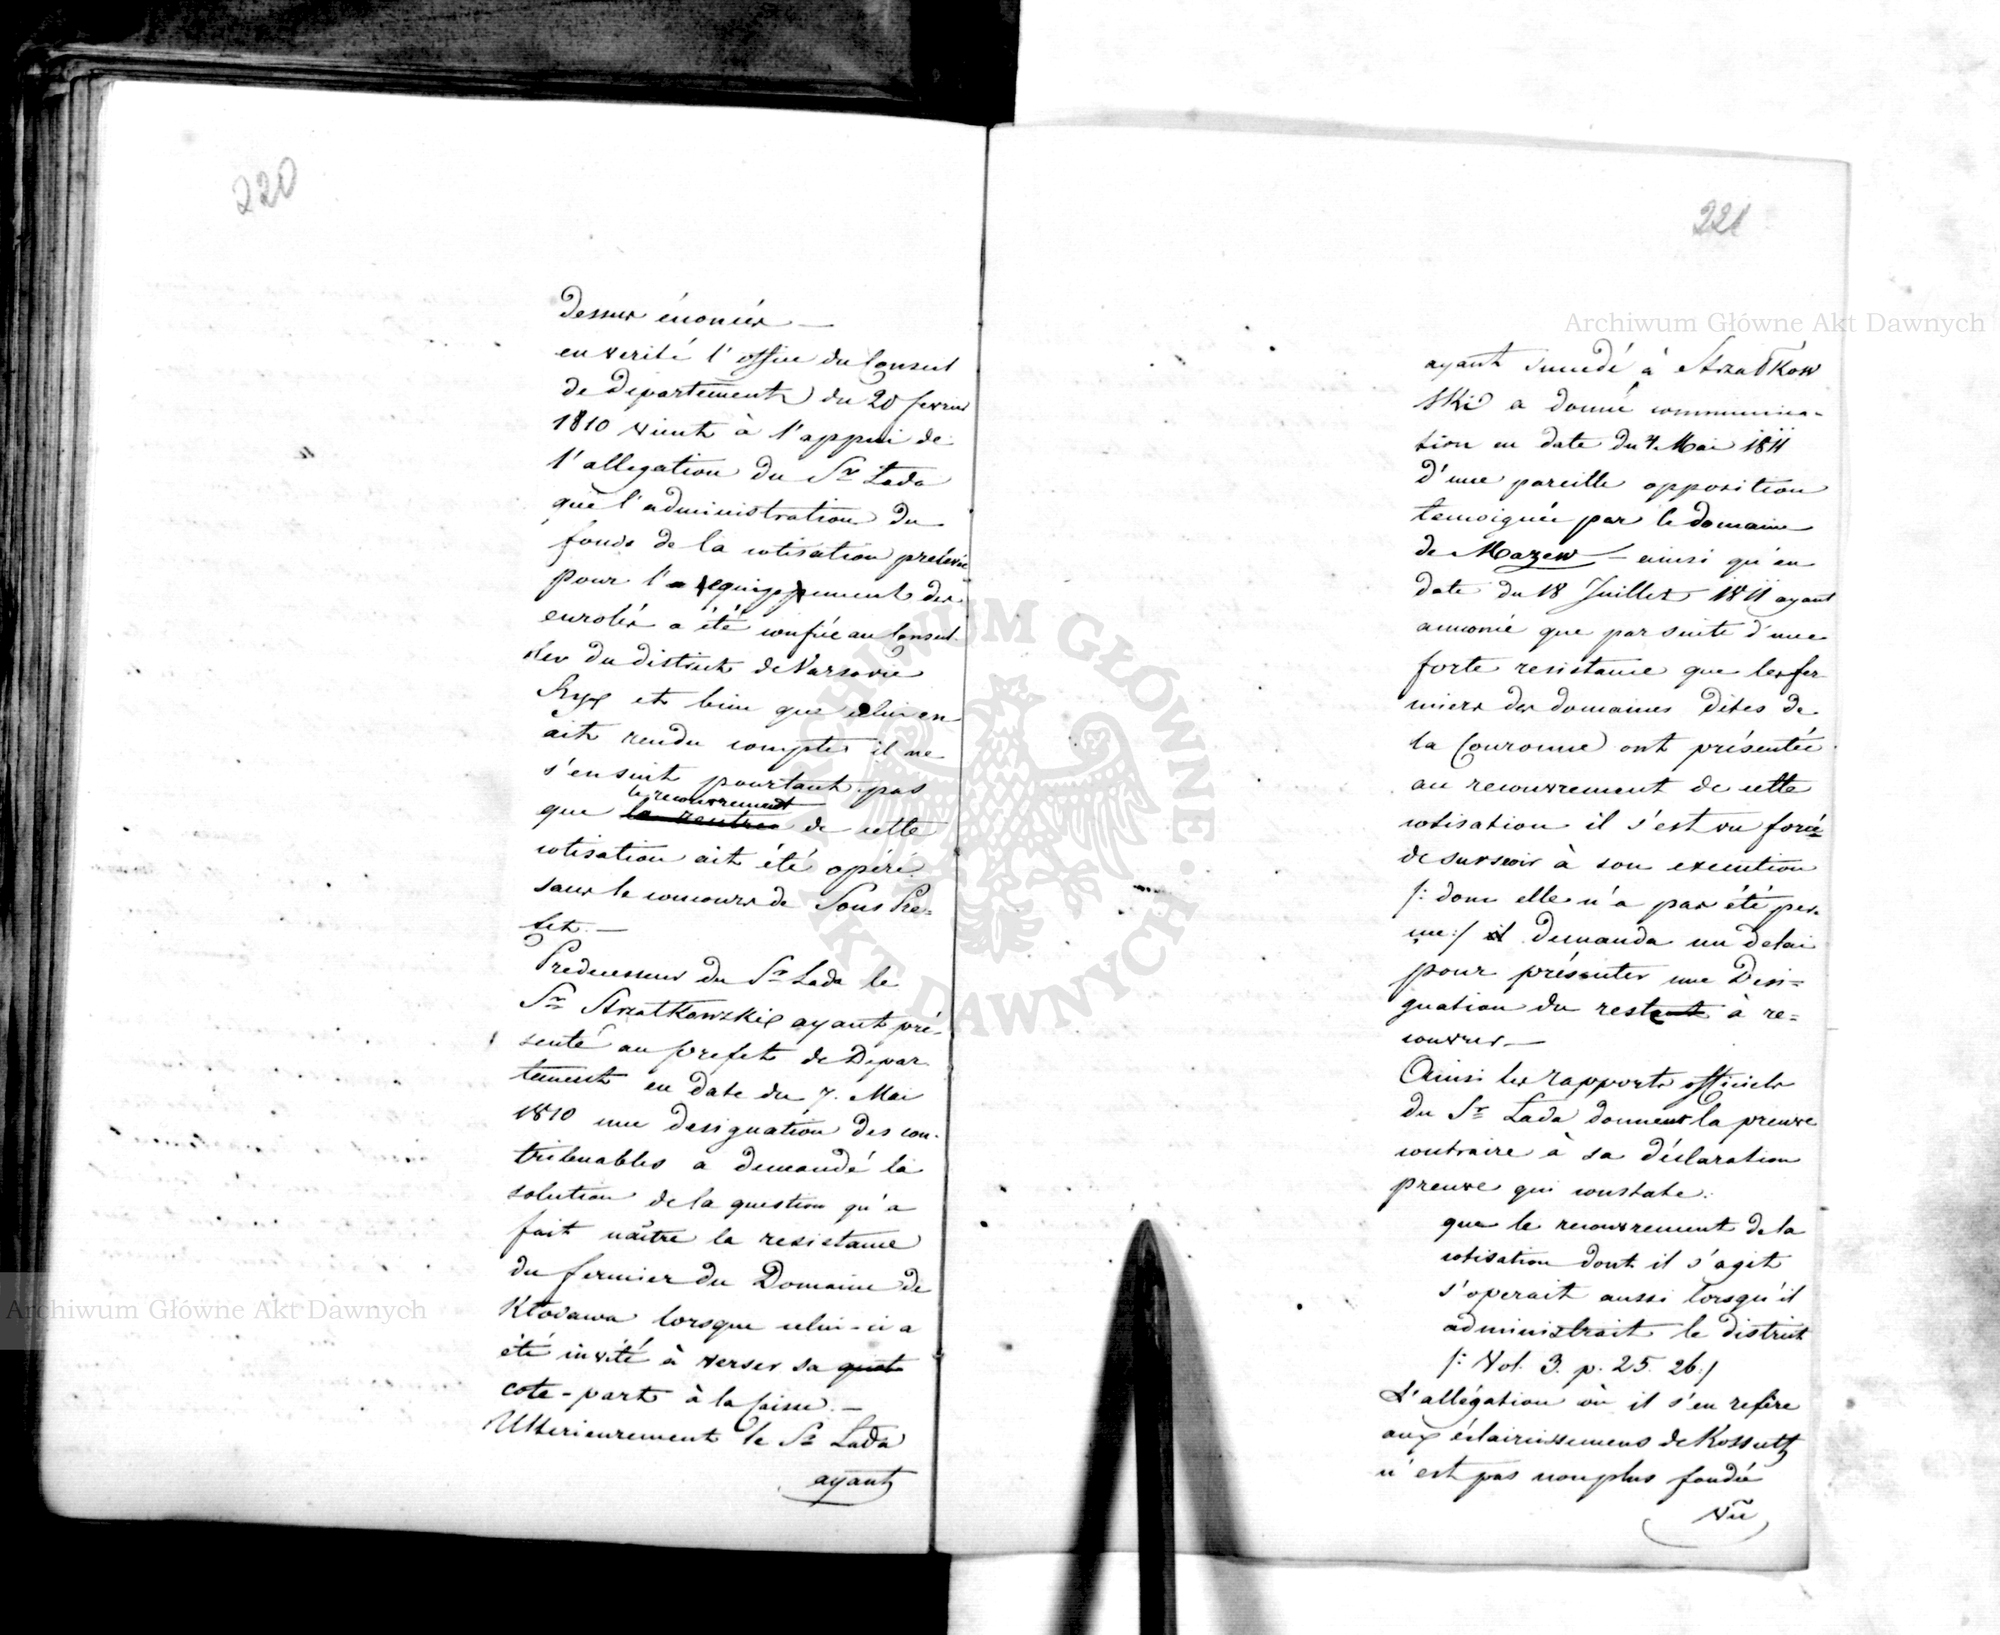 220
dessus énoncés —
en verité l'office du Conseil
de Departement du 20 fevrier
1810 vient à l'appui de
l'allegation du Sr Lada
que l'administration du
fonds de la cotisation prelevée
pour l'equippement des
enrolés a été confiée au Conseil-
ler du district de Varsovie
et bien que celui en
ait rendu compte il ne
s'en suit pourtant pas
le recouvrement
que la rentree de cette
cotisation ait été opéré
sans le concours de Sous Pre-
fet. —
Predecesseur du Sr Lada le
Sr Strzałkowski ayant pré-
senté au prefet de Depar
tement en date du 7. Mai
1810 une designation des con-
tribuables a demandé la
solution de la question qu'a
fait naître la resistance
du fermier du Domaine de
Kłodawa lorsque celui-ci a
été invité à verser sa quot
cote-part à la Caisse. —
Ulterieurement le Sr Lada
ayant
221
ayant succedé à Strzałkow
ski a donné communica-
tion en date du 4 Mai 1811
d'une pareille opposition
temoignée par le domaine
de Mazew — ainsi qu'en
date du 18 Juillet 1811 ayant
annoncé que par suite d'une
forte resistance que les fer
miers des domaines dites de
la Couronne ont présentée
au recouvrement de cette
cotisation il s'est vu forcé
de surseoir à son execution
/: donc elle n'a pas été per-
çue :/ il demanda un delai
pour présenter une Desi-
gnation du restant à re-
couvrer. —
Ainsi les rapports officiels
du Sr Lada donnent la preuve
contraire à sa déclaration
preuve qui constate:
que le recouvrement de la
cotisation dont il s'agit
s'operait aussi lorsqu'il
administrait le district
/: Vol. 3. p. 25. 26 :/
L'allégation où il s'en refère
aux éclaircissemens de Kossutz
n'est pas nonplus fondée
Vû
Archiwum Główne Akt Dawnych
Archiwum Główne Akt Dawnych
ARCHIWUM GŁÓWNE · AKT DAWNYCH ·